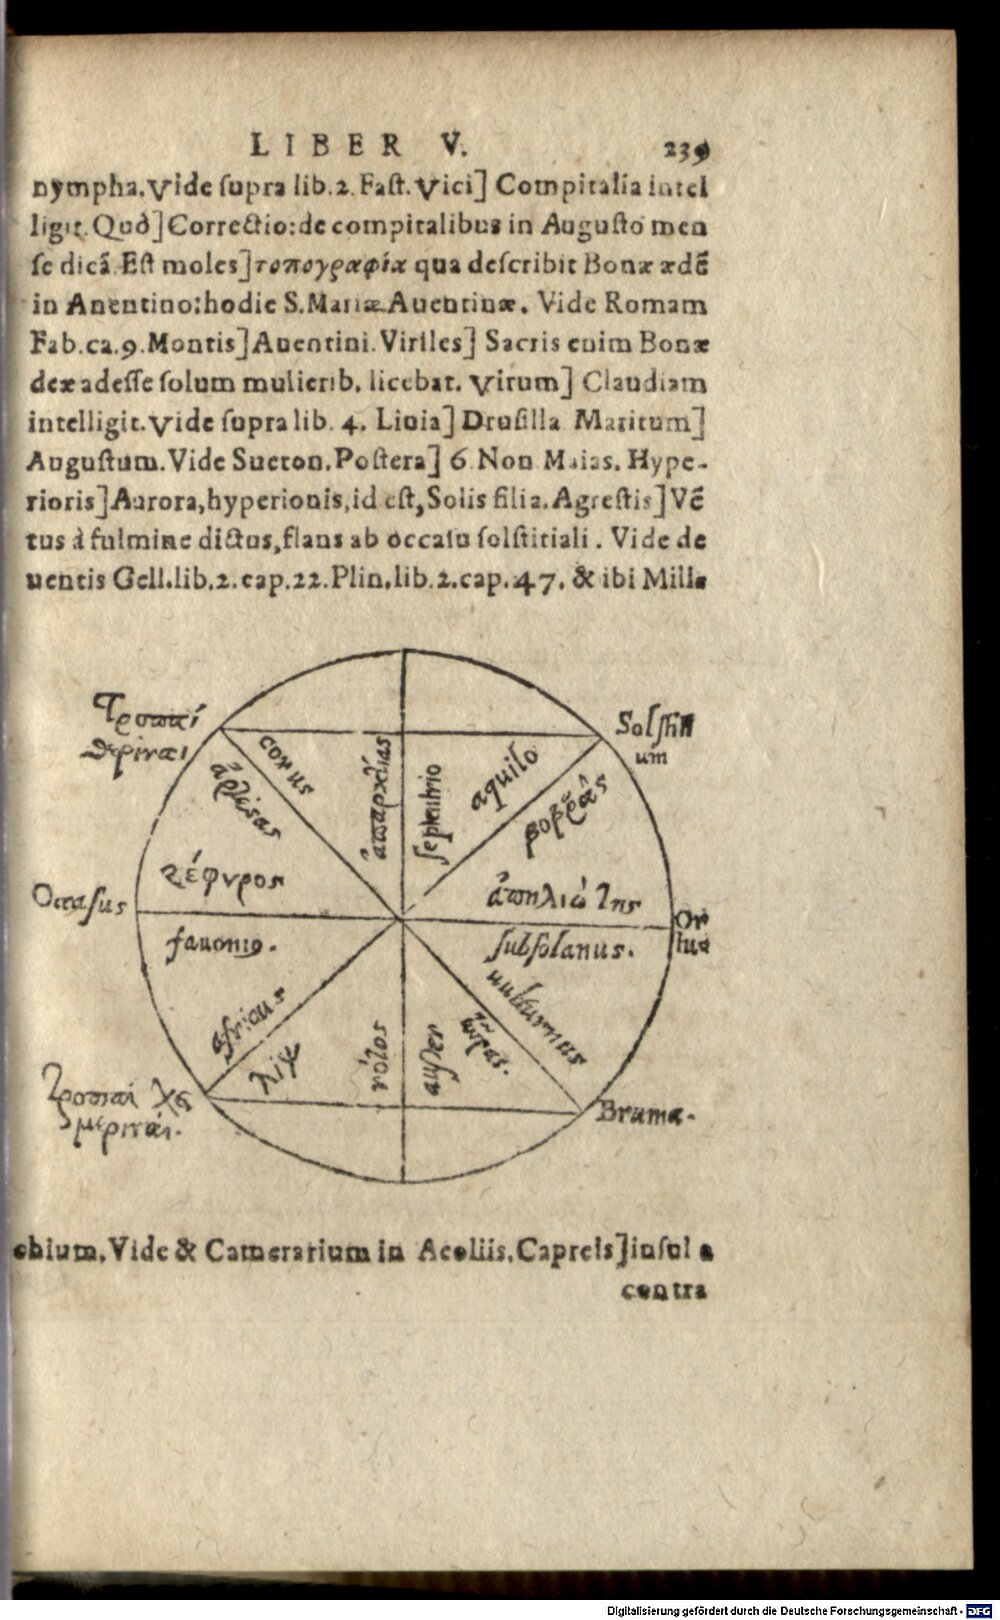 LIBER V. 239
nympha. Vide supra lib. 2. Fast. Vici] Compitalia intel
ligit. Quod] Correctio: de compitalibus in Augusto men
se dicã. Est moles] τοπογραφία qua describit Bonæ ædẽ
in Anentino: hodie S. Mariæ Auentinæ. Vide Romam
Fab. ca. 9. Montis] Auentini. Viriles] Sacris enim Bonæ
deæ adesse solum mulierib. licebat. Virum] Claudiam
intelligit. Vide supra lib. 4. Liuia] Drusilla Maritum]
Augustum. Vide Sueton. Postera] 6 Non Maias. Hype-
rioris] Aurora, hyperionis, id est, Solis filia. Agrestis] Vẽ
tus à fulmine dictus, flans ab occasu solstitiali. Vide de
uentis Gell. lib. 2. cap. 22. Plin. lib. 2. cap. 47. & ibi Mille
Τροπαί
θεριναι
Solstiti
um
corus
ἀργέσας
ἀπαρκτίας
septentrio
aquilo
βοῤῥᾶς
ζέφυρος
ἀπηλιώτης
Occasus
Or
tus
fauonio.
subsolanus.
africus
λιψ
νότος
auster
εὖρας.
uulturnus
Τροπαί χε
μεριναί.
Bruma.
chium. Vide & Camerarium in Aeoliis. Capreis] insul a
contra
Digitalisierung gefördert durch die Deutsche Forschungsgemeinschaft - DFG